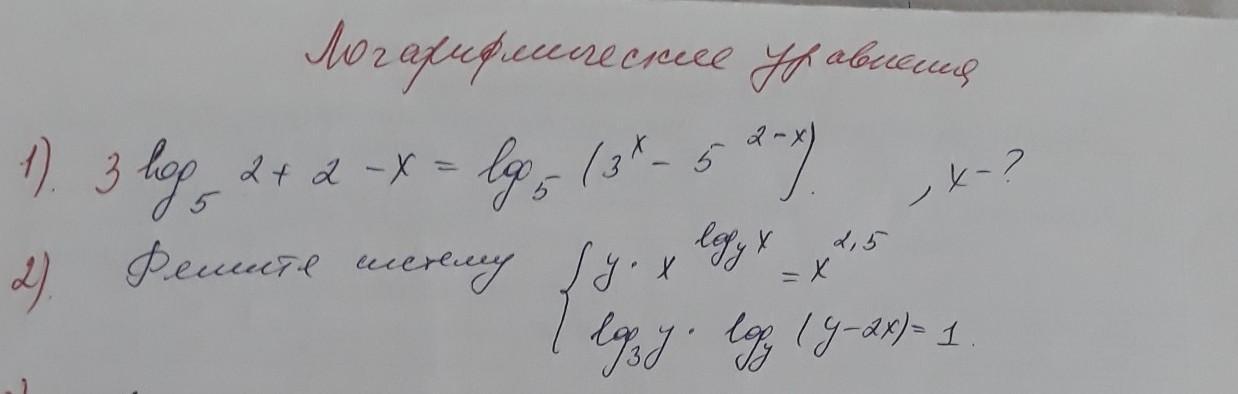 Логарифмические уравнения
1). 3 log₅ 2 + 2 - x = log₅ (3ˣ - 5²⁻ˣ). , x - ?
2). Решите систему { y · x^(log_y x) = x^(2,5)
log₃ y · log_y (y - 2x) = 1.